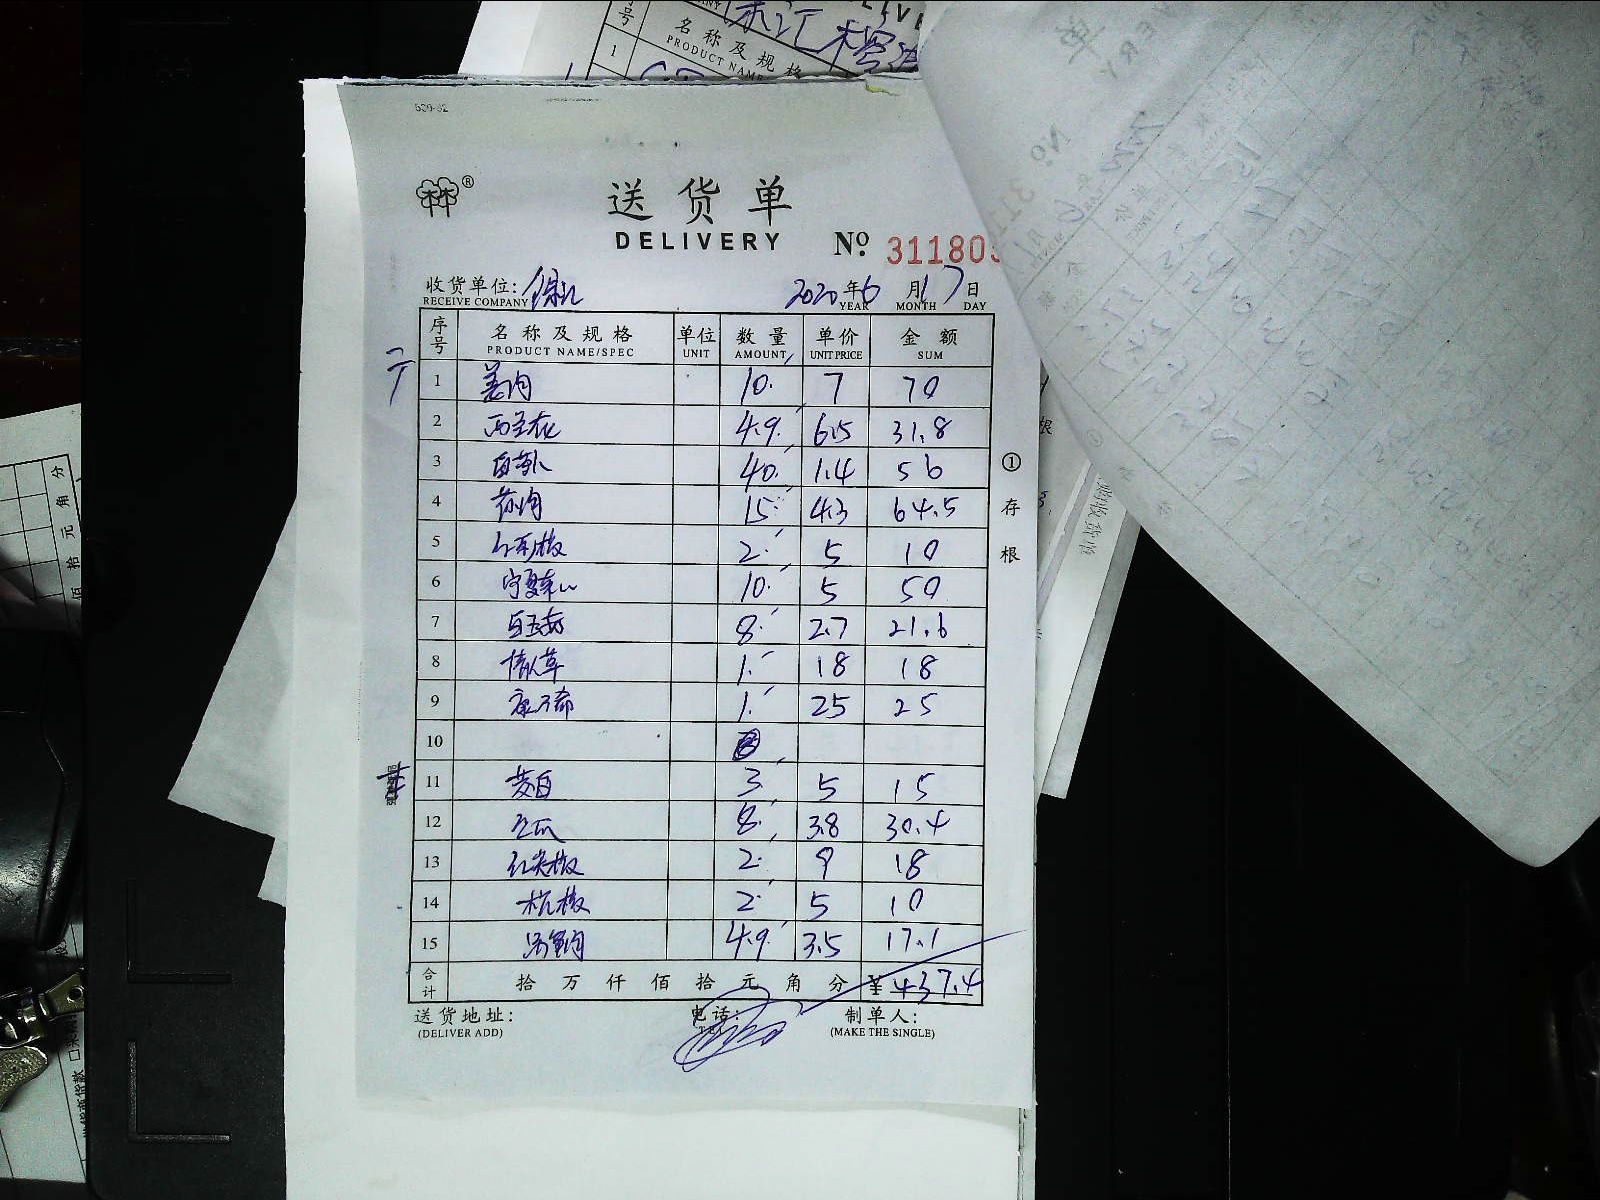 名称及规格
PRODUCT NAME
1
539-32
®
送货单
DELIVERY
№ 31180
收货单位: 徐汇 2020年6月17日
RECEIVE COMPANY YEAR MONTH DAY
序号 名称及规格 单位 数量 单价 金额
PRODUCT NAME/SPEC UNIT AMOUNT UNIT PRICE SUM
1 姜肉 10. 7 70
2 西兰花 4.9 6.5 31.8
3 白萝卜 40. 1.4 56
4 15 4.3 64.5
5 2. 5 10
6 宁夏菜心 10. 5 50
7 白玉菇 8. 2.7 21.6
8 情人草 1. 18 18
9 康乃馨 1. 25 25
10
11 茭白 3 5 15
12 冬瓜 8. 3.8 30.4
13 红尖椒 2. 9 18
14 杭椒 2. 5 10
15 4.9 3.5 17.1
合计 拾 万 仟 佰 拾 元 角 分 ¥ 437.4
送货地址: 电话: 制单人:
(DELIVER ADD) (MAKE THE SINGLE)
① 存根